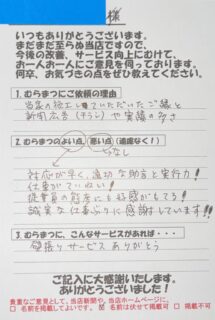 様
いつもありがとうございます。
まだまだ至らぬ当店ですので、
今後の改善、サービス向上にむけて、
お一人お一人にご意見を伺っております。
何卒、お気づきの点をぜひ教えてください。
1. むらまつにご依頼の理由
当家の施工していただいたご縁と
新聞広告(チラシ)や実績の多さ
2. むらまつのよい点、悪い点(遠慮なく!)
なし
対応が早く、適切な助言と実行力!
仕事がていねい!
従業員の態度にも好感がもてる!
誠実な仕事ぶりに感謝しています!!
3. むらまつに、こんなサービスがあれば・・・
サービス ありがとう
ご記入に大感謝いたします。
ありがとうございました!
貴重なご意見として、当店新聞や、当店ホームページに、
□ 名前を掲載してよいです。 □ 名前は伏せて掲載可 □ 掲載不可